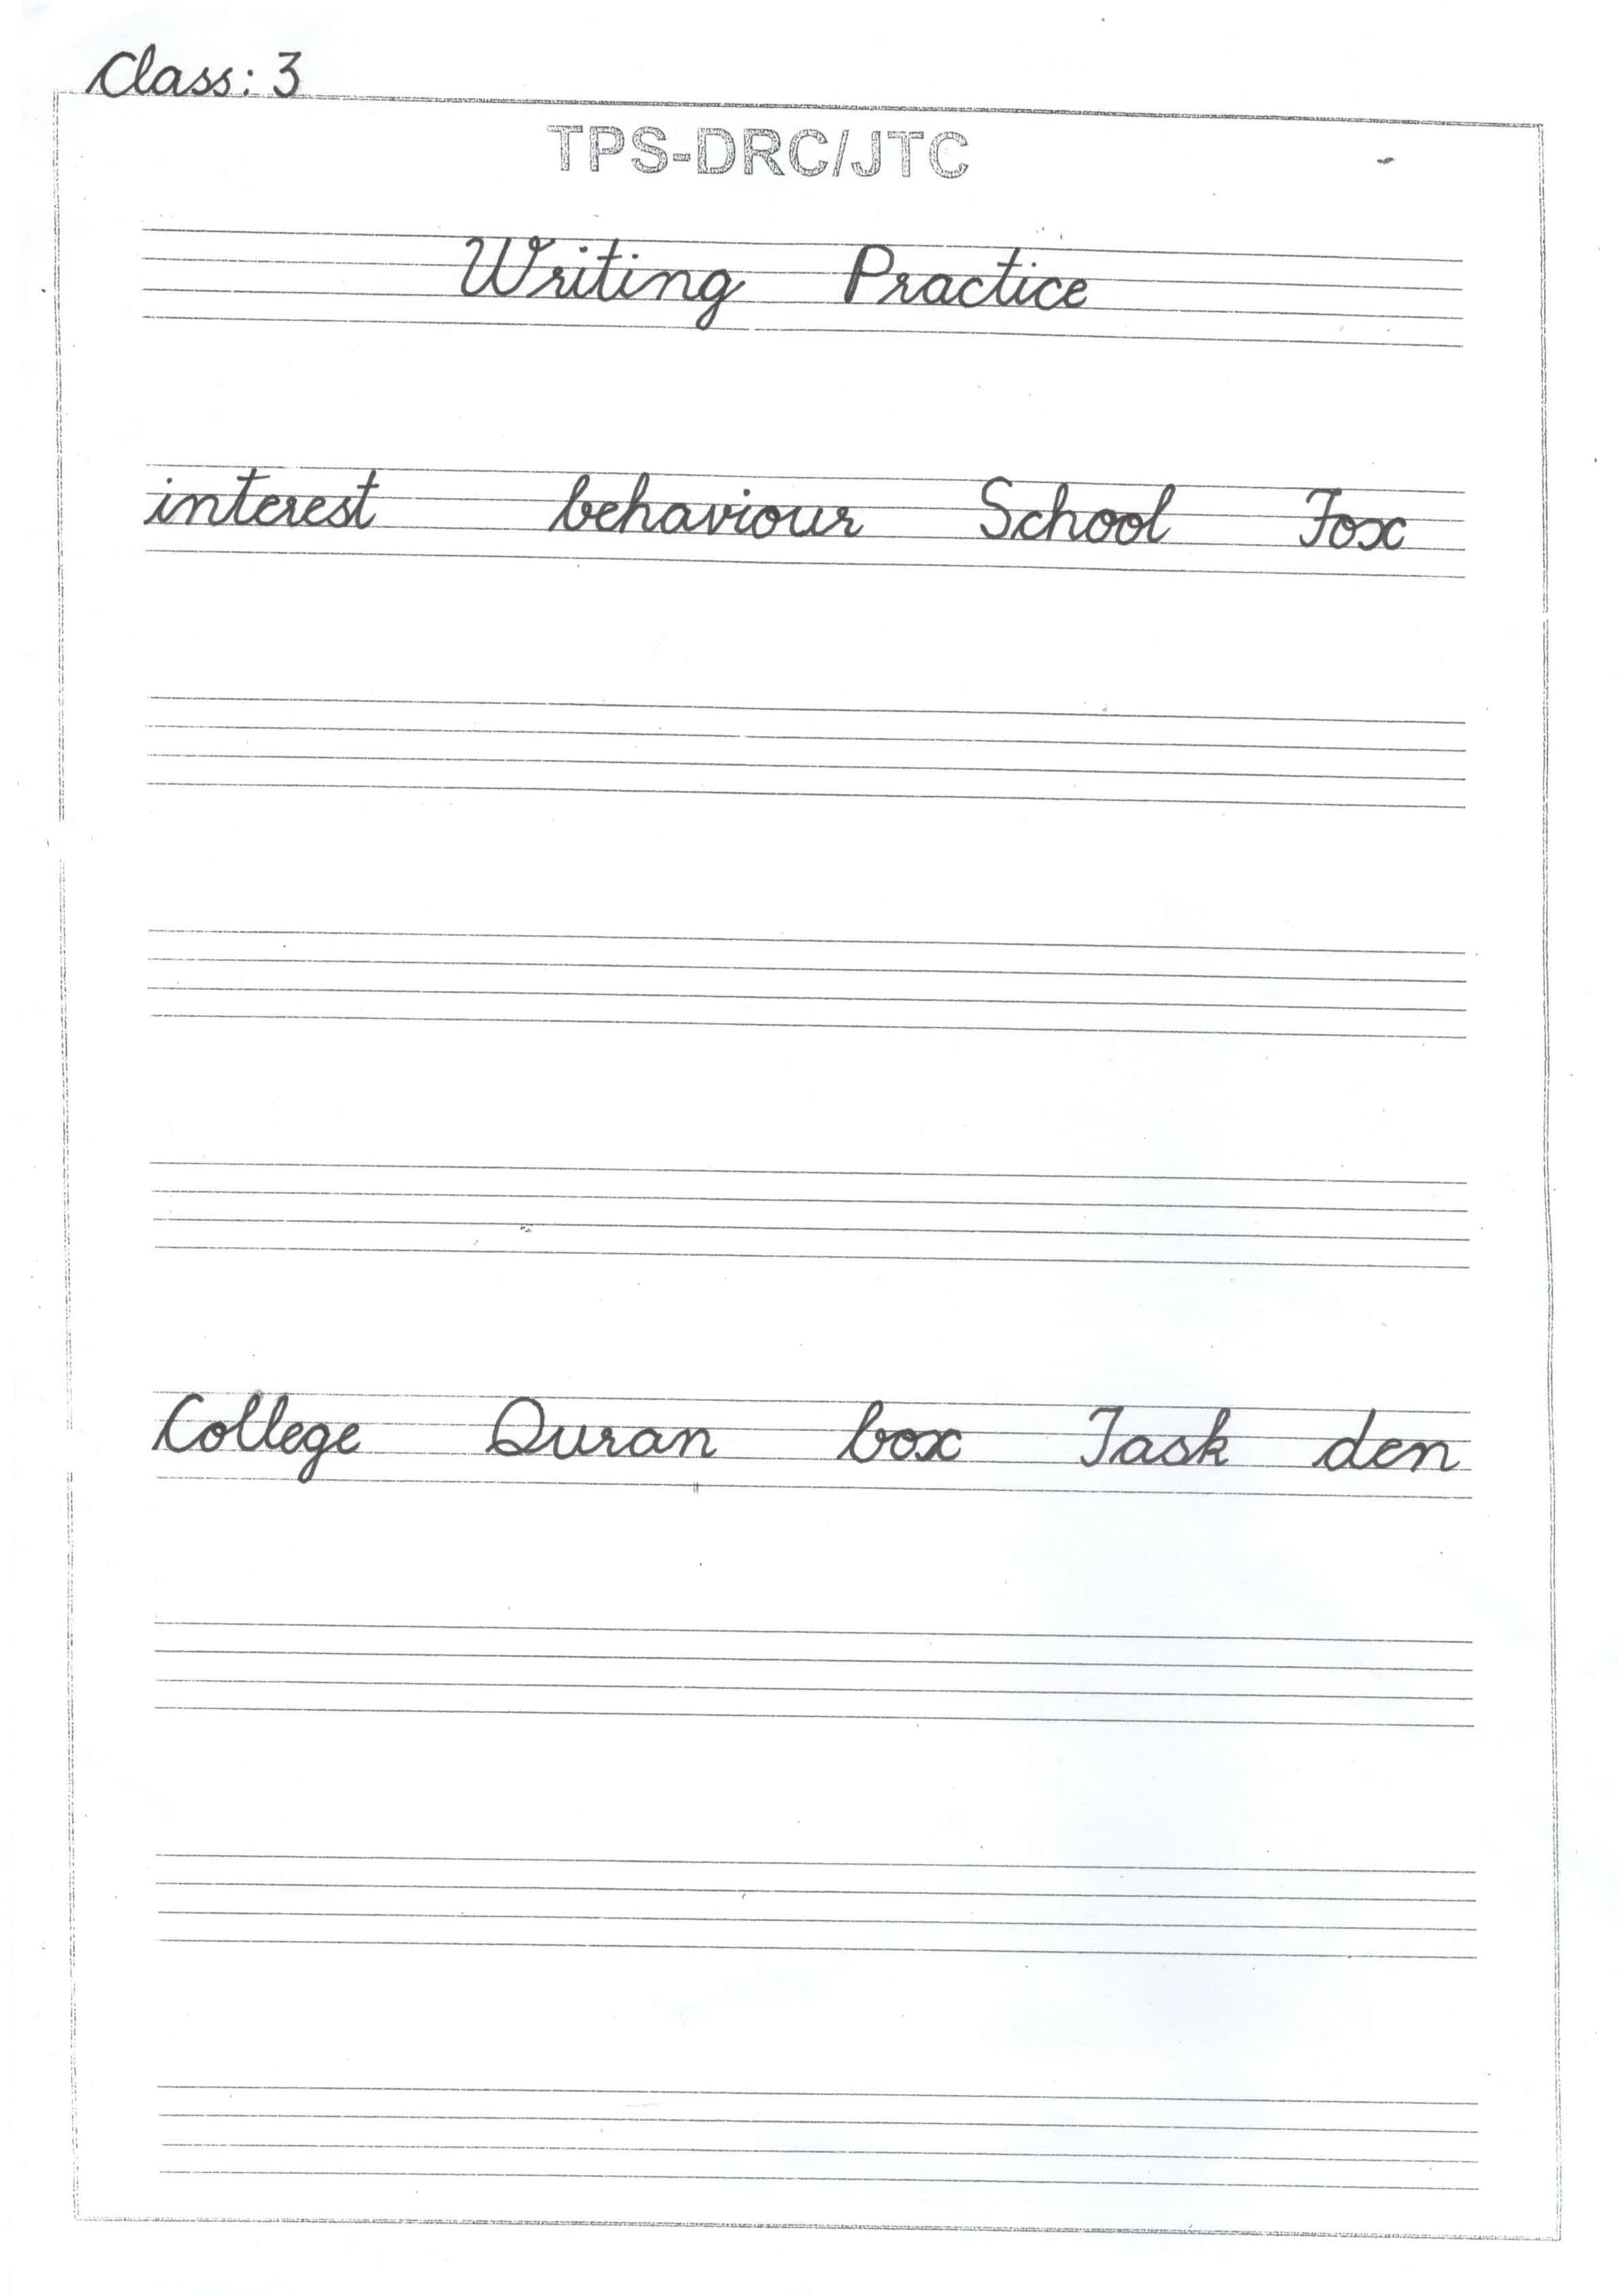 Class: 3
TPS-DRC/JTC
Writing Practice
interest behaviour School Fox
College Quran box Task den